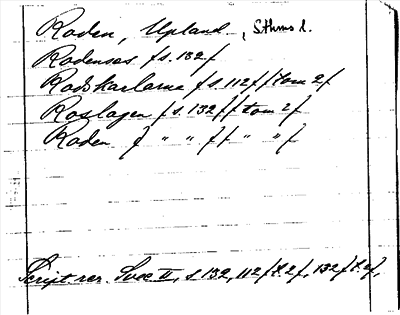 Roden, Upland, Sthms l.
Rodenses f s. 132 f
Rodskarlarne f s. 112 f f tom 2 f
Roslagen f s. 132 f f tom 2 f
Roden f " " f f " " f
Script rer. Svec II, s 132, 112 f t. 2 f, 132 f t. 2 f,